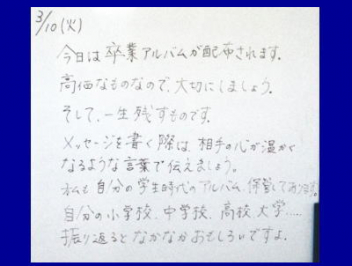 3/10(火)
今日は卒業アルバムが配布されます。
高価なものなので、大切にしましょう。
そして、一生残すものです。
メッセージを書く際は、相手の心が温かく
なるような言葉で伝えましょう。
私も自分の学生時代のアルバム、保管してあります。
自分の小学校、中学校、高校、大学.....
振り返るとなかなかおもしろいですよ。